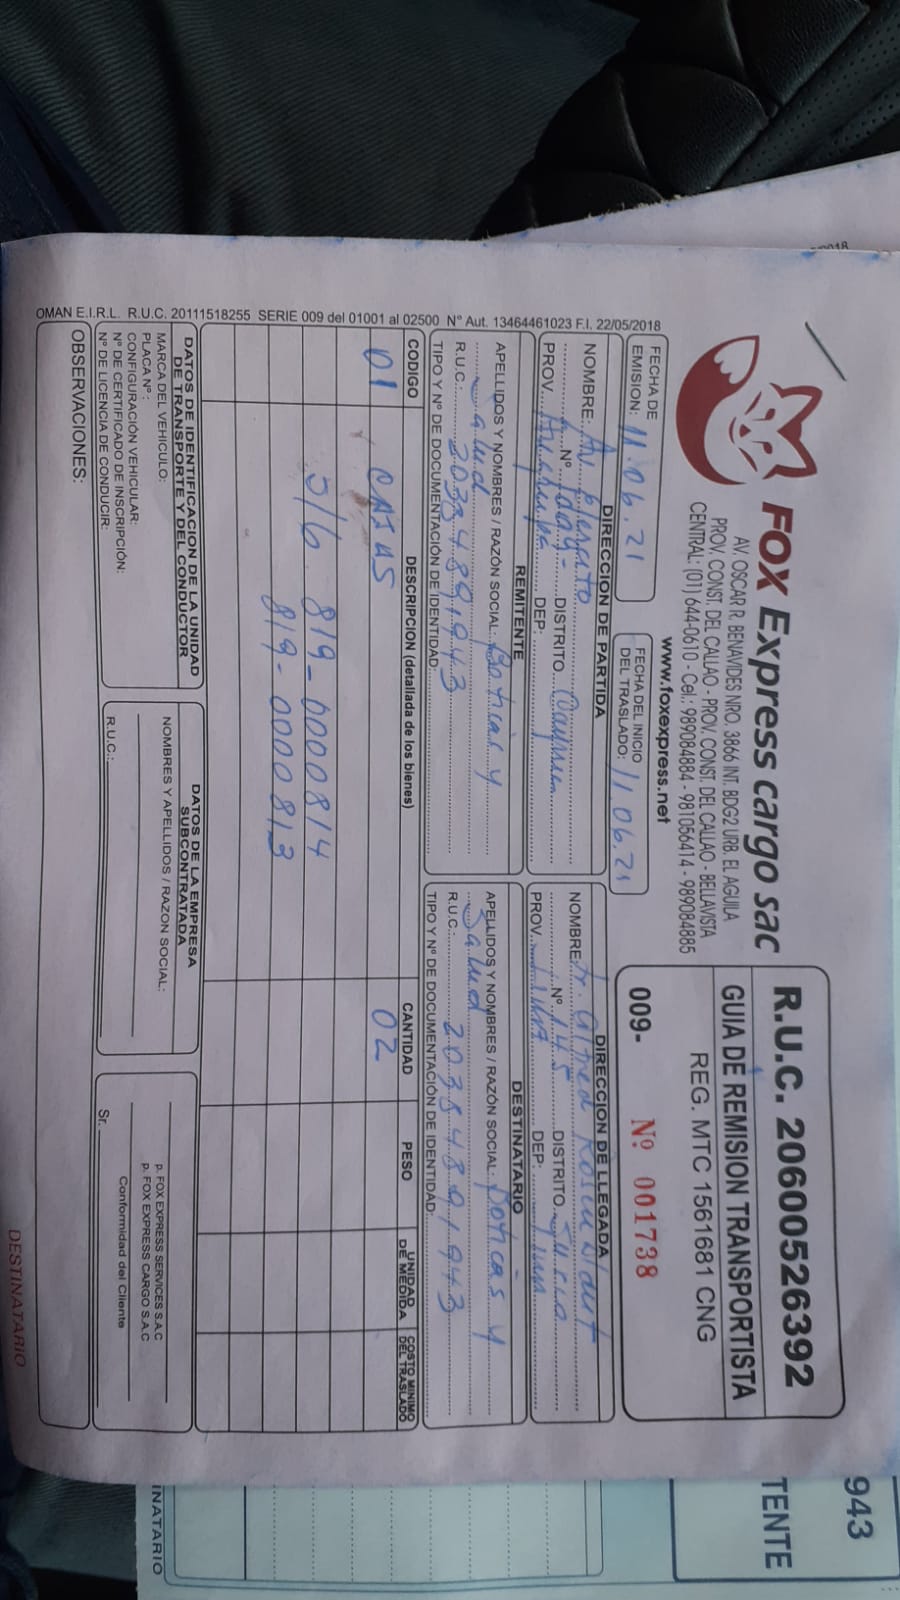 FOX Express cargo sac
AV. OSCAR R. BENAVIDES NRO. 3866 INT. BDG2 URB. EL AGUILA
PROV. CONST. DEL CALLAO - PROV. CONST. DEL CALLAO - BELLAVISTA
CENTRAL: (01) 644-0610 - Cel.: 989084884 - 981056414 - 989084885
www.foxexpress.net
R.U.C. 20600526392
GUIA DE REMISION TRANSPORTISTA
REG. MTC 1561681 CNG
009- Nº 001738
FECHA DE EMISION: 11.06.21
FECHA DEL INICIO DEL TRASLADO: 11.06.21
DIRECCION DE PARTIDA
NOMBRE: Av.
Nº DISTRITO
PROV. Arequipa DEP:
DIRECCION DE LLEGADA
NOMBRE: Jr. Alfred
Nº 145 DISTRITO
PROV. DEP:
REMITENTE
APELLIDOS Y NOMBRES / RAZÓN SOCIAL: Boticas y
Salud
R.U.C.
TIPO Y Nº DE DOCUMENTACIÓN DE IDENTIDAD:
DESTINATARIO
APELLIDOS Y NOMBRES / RAZÓN SOCIAL: Boticas y
Salud
R.U.C.: 20354891943
TIPO Y Nº DE DOCUMENTACIÓN DE IDENTIDAD:
CODIGO DESCRIPCION (detallada de los bienes) CANTIDAD PESO UNIDAD DE MEDIDA COSTO MINIMO DEL TRASLADO
01 CAJAS 02
819-0000814
819-0000813
DATOS DE IDENTIFICACION DE LA UNIDAD
DE TRANSPORTE Y DEL CONDUCTOR
MARCA DEL VEHICULO:
PLACA Nº:
CONFIGURACIÓN VEHICULAR:
Nº DE CERTIFICADO DE INSCRIPCIÓN:
Nº DE LICENCIA DE CONDUCIR:
DATOS DE LA EMPRESA
SUBCONTRATADA
NOMBRES Y APELLIDOS / RAZON SOCIAL:
R.U.C.:
p. FOX EXPRESS SERVICES S.A.C
p. FOX EXPRESS CARGO S.A.C
Conformidad del Cliente
Sr.
OBSERVACIONES:
DESTINATARIO
OMAN E.I.R.L. R.U.C. 20111518255 SERIE 009 del 01001 al 02500 Nº Aut. 13464461023 F.I. 22/05/2018
943
TENTE
INATARIO